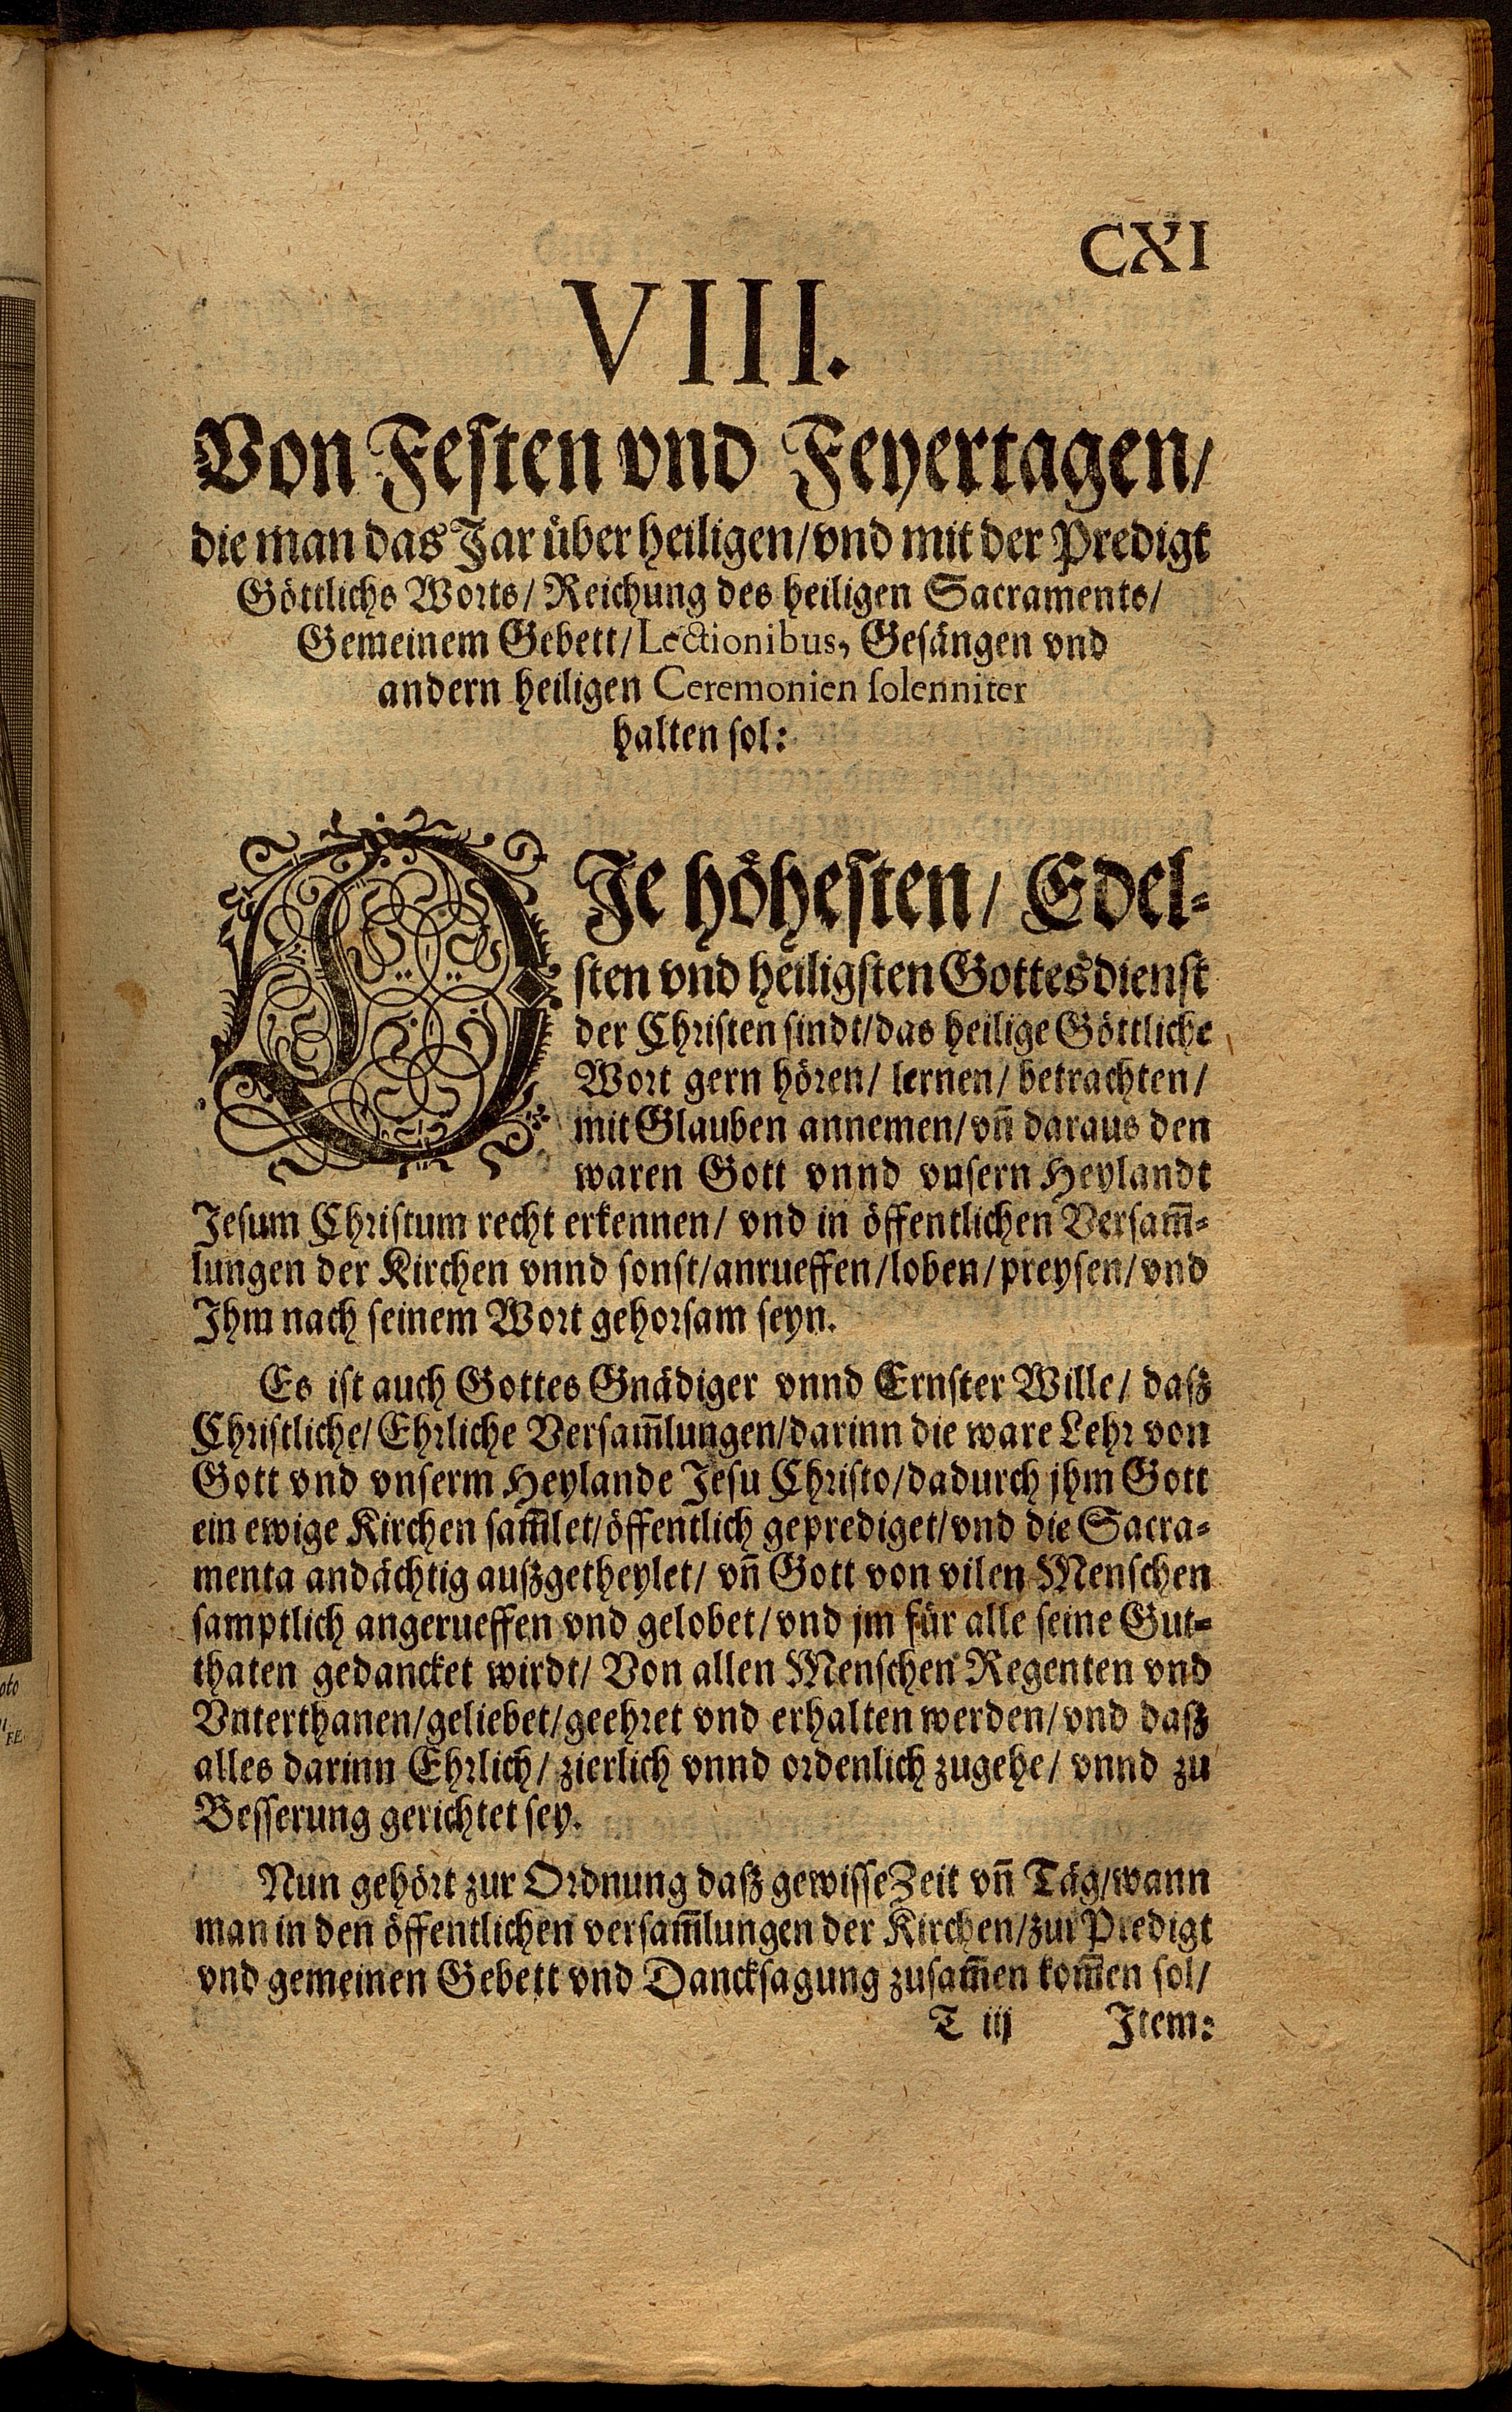 CXI
VIII.
Von Festen vnd Feyertagen/
die man das Jar über heiligen/vnd mit der Predigt
Göttlichs Worts/ Reichung des heiligen Sacraments/
Gemeinem Gebett/Lectionibus, Gesängen vnd
andern heiligen Ceremonien solenniter
halten sol:
DJe höhesten/ Edel-
sten vnd heiligsten Gottesdienst
der Christen sindt/das heilige Göttliche
Wort gern hören/ lernen/ betrachten/
mit Glauben annemen/vn̄ daraus den
waren Gott vnnd vnsern Heylandt
Jesum Christum recht erkennen/ vnd in öffentlichen Versam̄-
lungen der Kirchen vnnd sonst/anrueffen/loben/preysen/vnd
Jhm nach seinem Wort gehorsam seyn.
Es ist auch Gottes Gnädiger vnnd Ernster Wille/ daß
Christliche/Ehrliche Versam̄lungen/darinn die ware Lehr von
Gott vnd vnserm Heylande Jesu Christo/dadurch jhm Gott
ein ewige Kirchen sam̄let/öffentlich geprediget/vnd die Sacra-
menta andächtig außgetheylet/ vn̄ Gott von vilen Menschen
samptlich angerueffen vnd gelobet/vnd jm für alle seine Gut-
thaten gedancket wirdt/ Von allen Menschen Regenten vnd
Vnterthanen/geliebet/geehret vnd erhalten werden/vnd daß
alles darinn Ehrlich/ zierlich vnnd ordenlich zugehe/ vnnd zu
Besserung gerichtet sey.
Nun gehört zur Ordnung daß gewisse Zeit vn̄ Täg/wann
man in den öffentlichen versam̄lungen der Kirchen/zur Predigt
vnd gemeinen Gebett vnd Dancksagung zusam̄en kom̄en sol/
T iij Jtem: